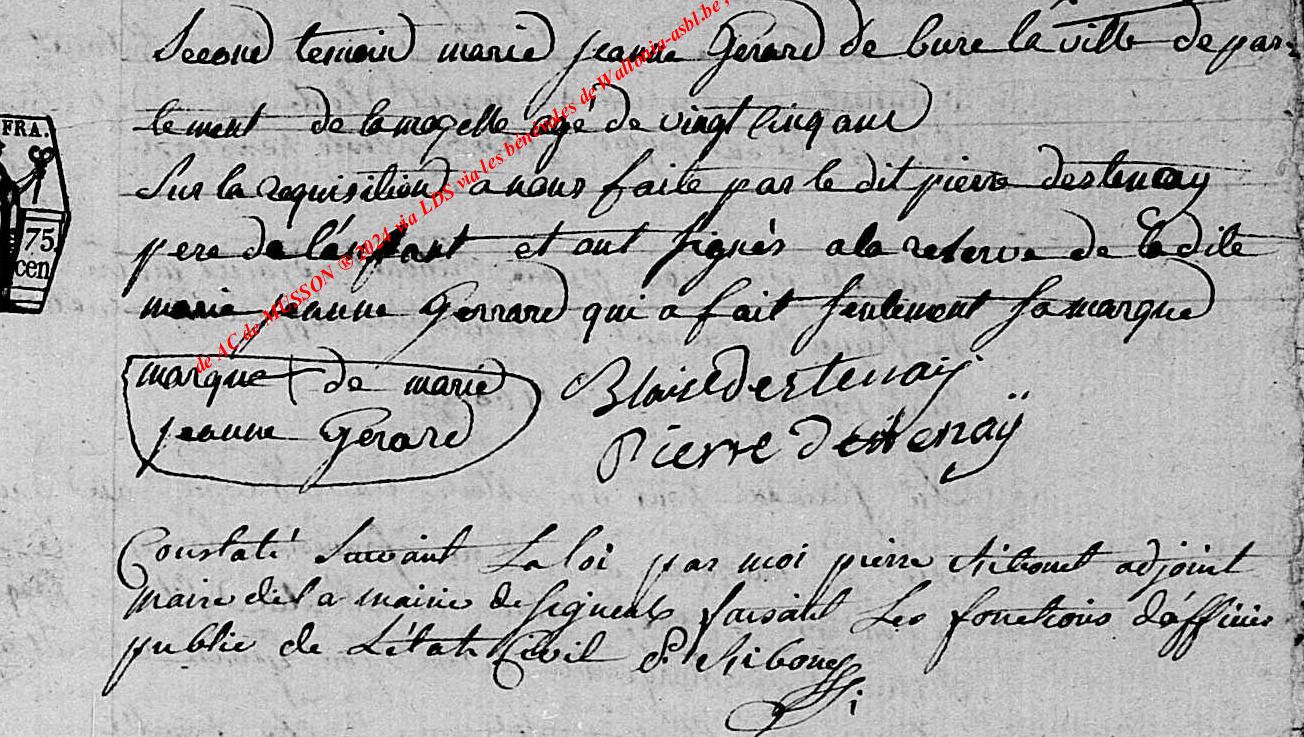 Second temoin marie jeanne Gerard de bure la ville depar-
tement de la mozelle agé de vingt cinq ans
Sur la requisition a nous faite par le dit pierre destenay
FRA.
75
cen
pere de l'enfant et ont signés a la reserve de ladite
marie jeanne Gerrard qui a fait seulement sa marque
marque + de marie
jeanne Gerard
Blaise destenaÿ
Pierre destenaÿ
Constaté Suivant La loi par moi pierre adjoint
maire de la mairie de signeulx faisant Les fonctions d'officier
public de L'état Civil P.
de AC de MUSSON ® 2024 via LDS via les bénévoles de Wallonia-asbl.be ,